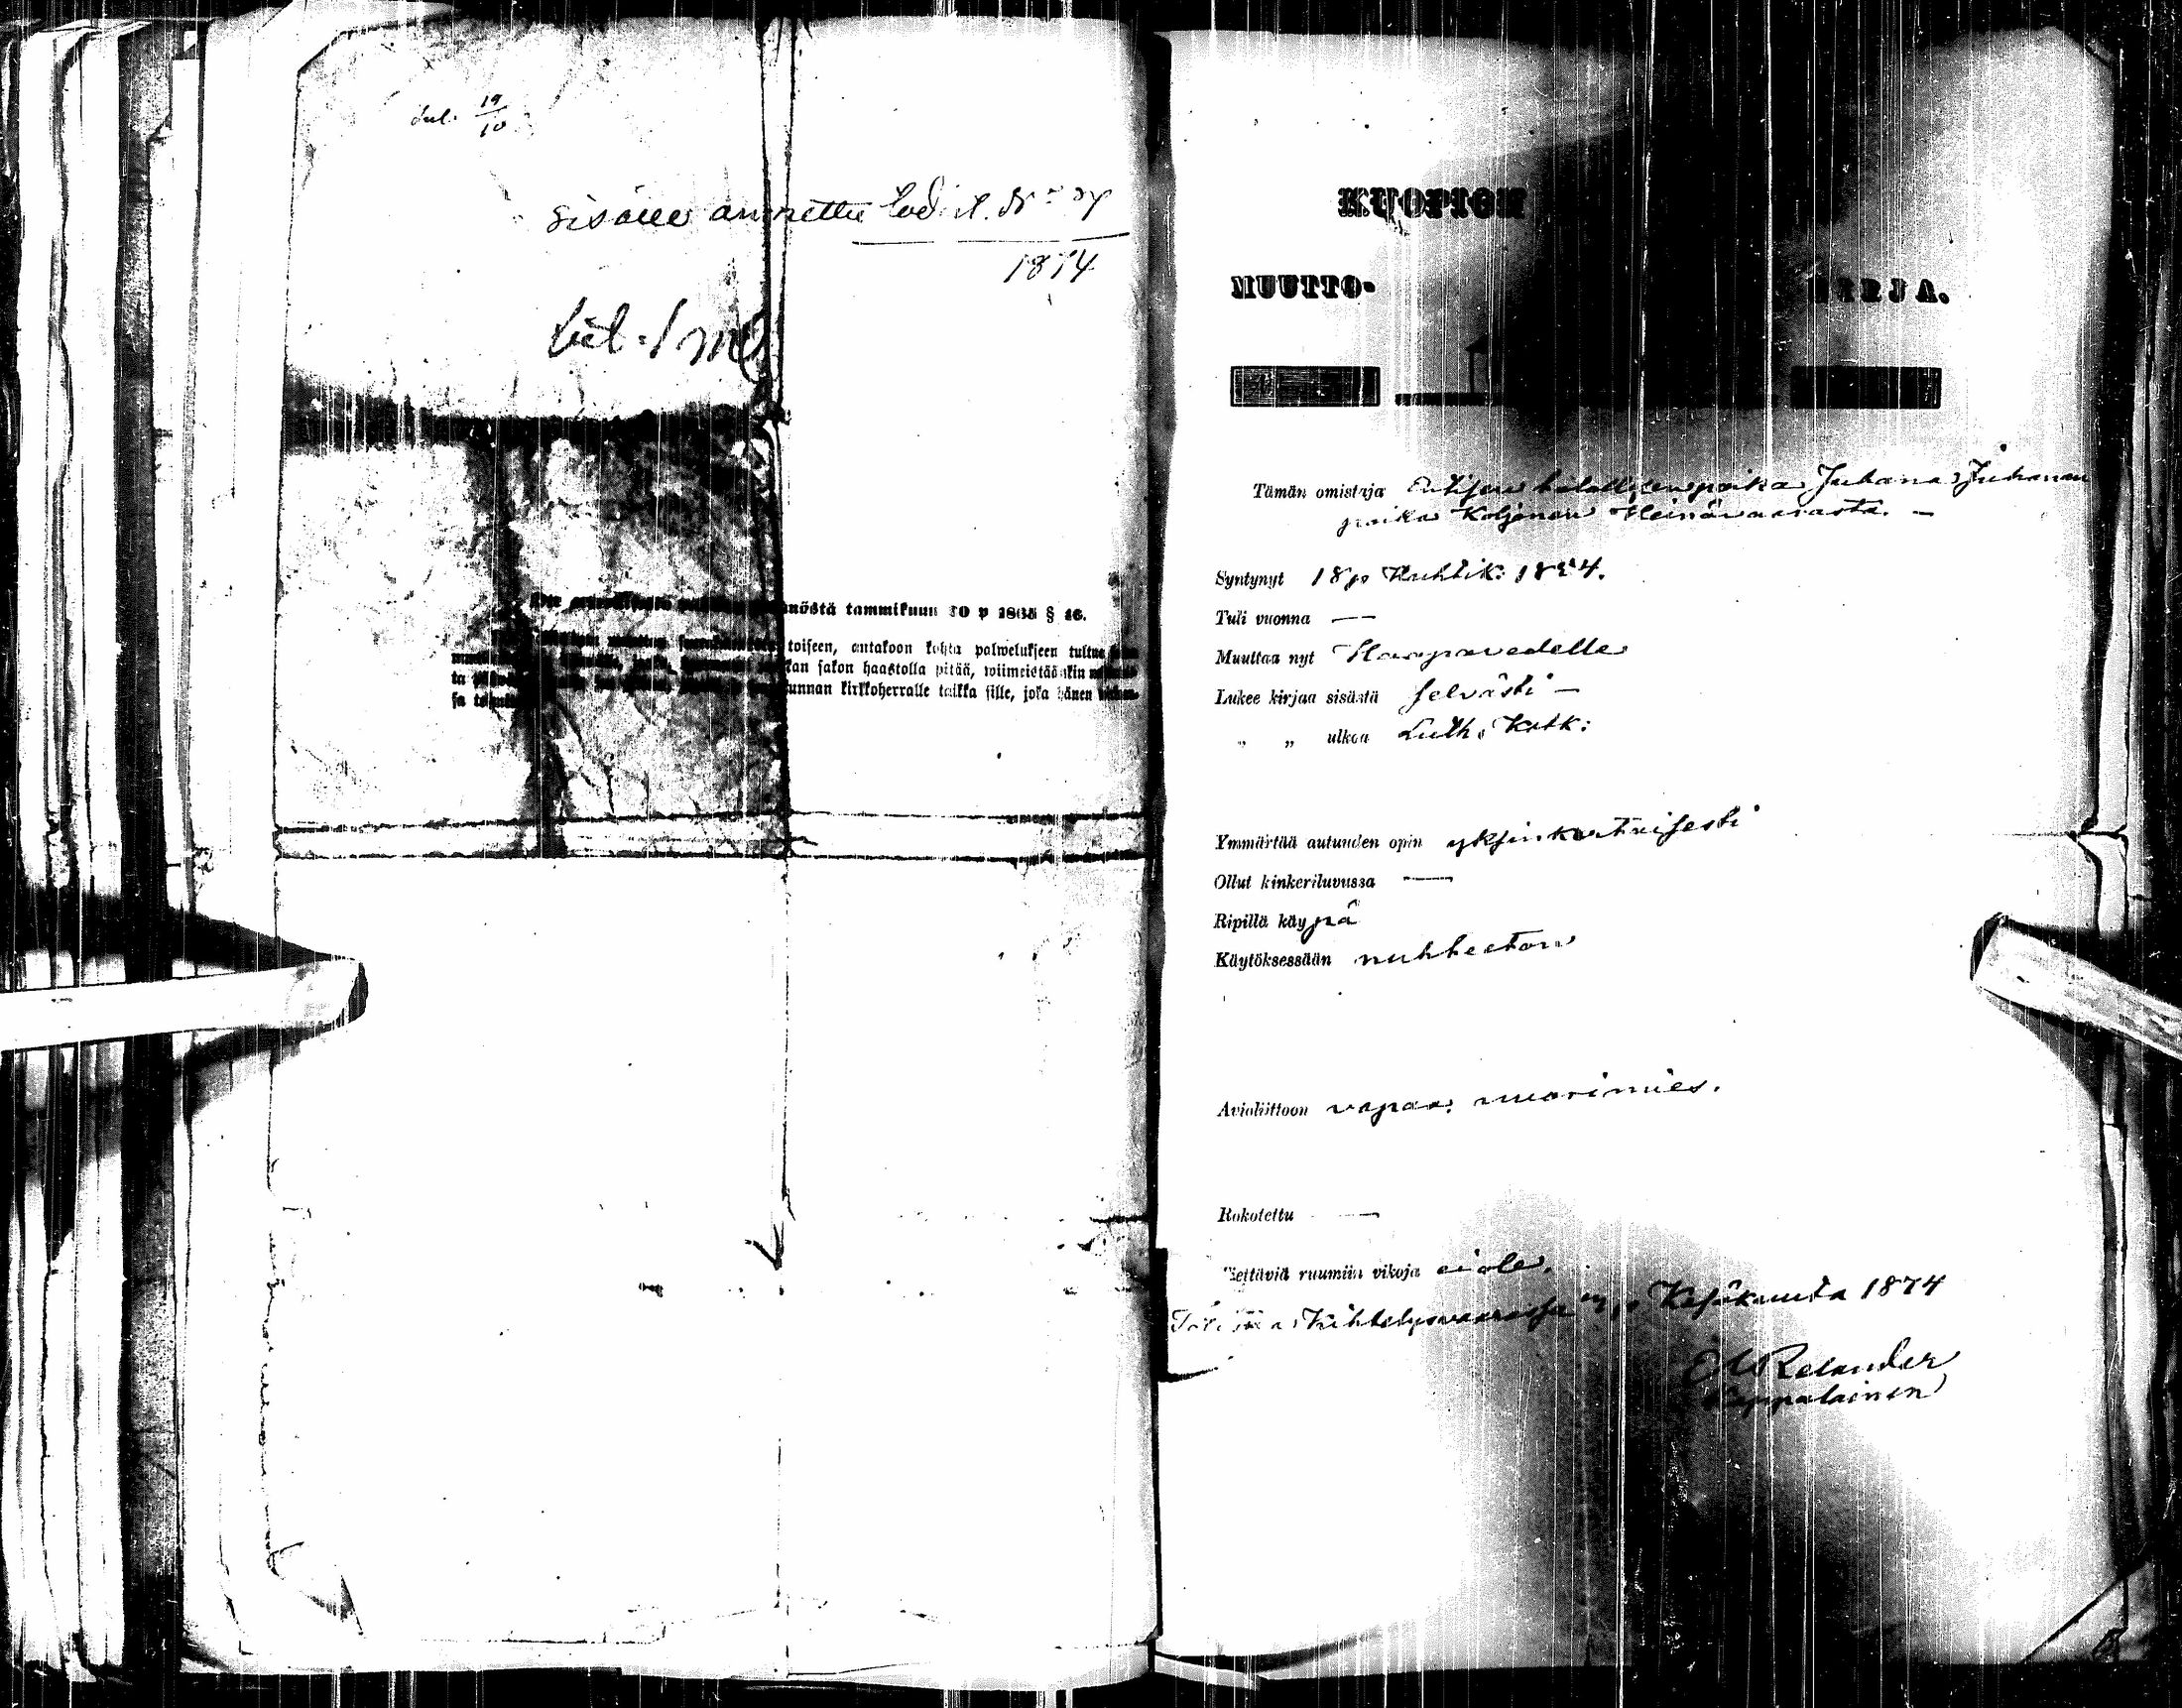 tul. 19/10
sisälle annettu todist. N:o
1874
nöstä tammikuun 10 p 1865 § 16.
toiseen, antakoon kohta palwelukseen tultua
kan jakon haastolla pitää, wiimeistäänkin
unnan kirkkoherralle taikka sille, joka hänen
KUOPION
MUUTTO- KIRJA.
Tämän omistaja Entisen talollisen poika Juhana Juhanan
poika Koljonen Heinävaarasta. —
Syntynyt 18 p Huhtik: 1854.
Tuli vuonna —
Muuttaa nyt Haapavedelle
Lukee kirjaa sisästä selvästi —
„ „ ulkoa Luth. Katk:
Ymmärtää autuuden opin yksinkertaisesti
Ollut kinkeriluvussa —
Ripillä käypä
Käytöksessään nuhteeton
Avioliittoon vapaa, nuorimies.
Rokotettu —
Tiettäviä ruumiin vikoja ei ole.
Kiihtelysvaarassa p Kesäkuuta 1874
Relander
Kappalainen